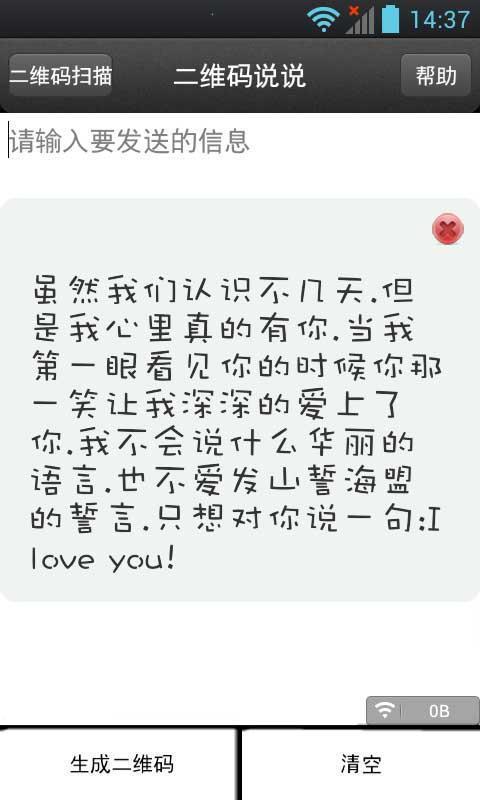 14:37
二维码扫描 二维码说说 帮助
请输入要发送的信息
虽然我们认识不几天.但
是我心里真的有你.当我
第一眼看见你的时候你那
一笑让我深深的爱上了
你.我不会说什么华丽的
语言.也不爱发山誓海盟
的誓言.只想对你说一句:I
love you!
0B
生成二维码 清空